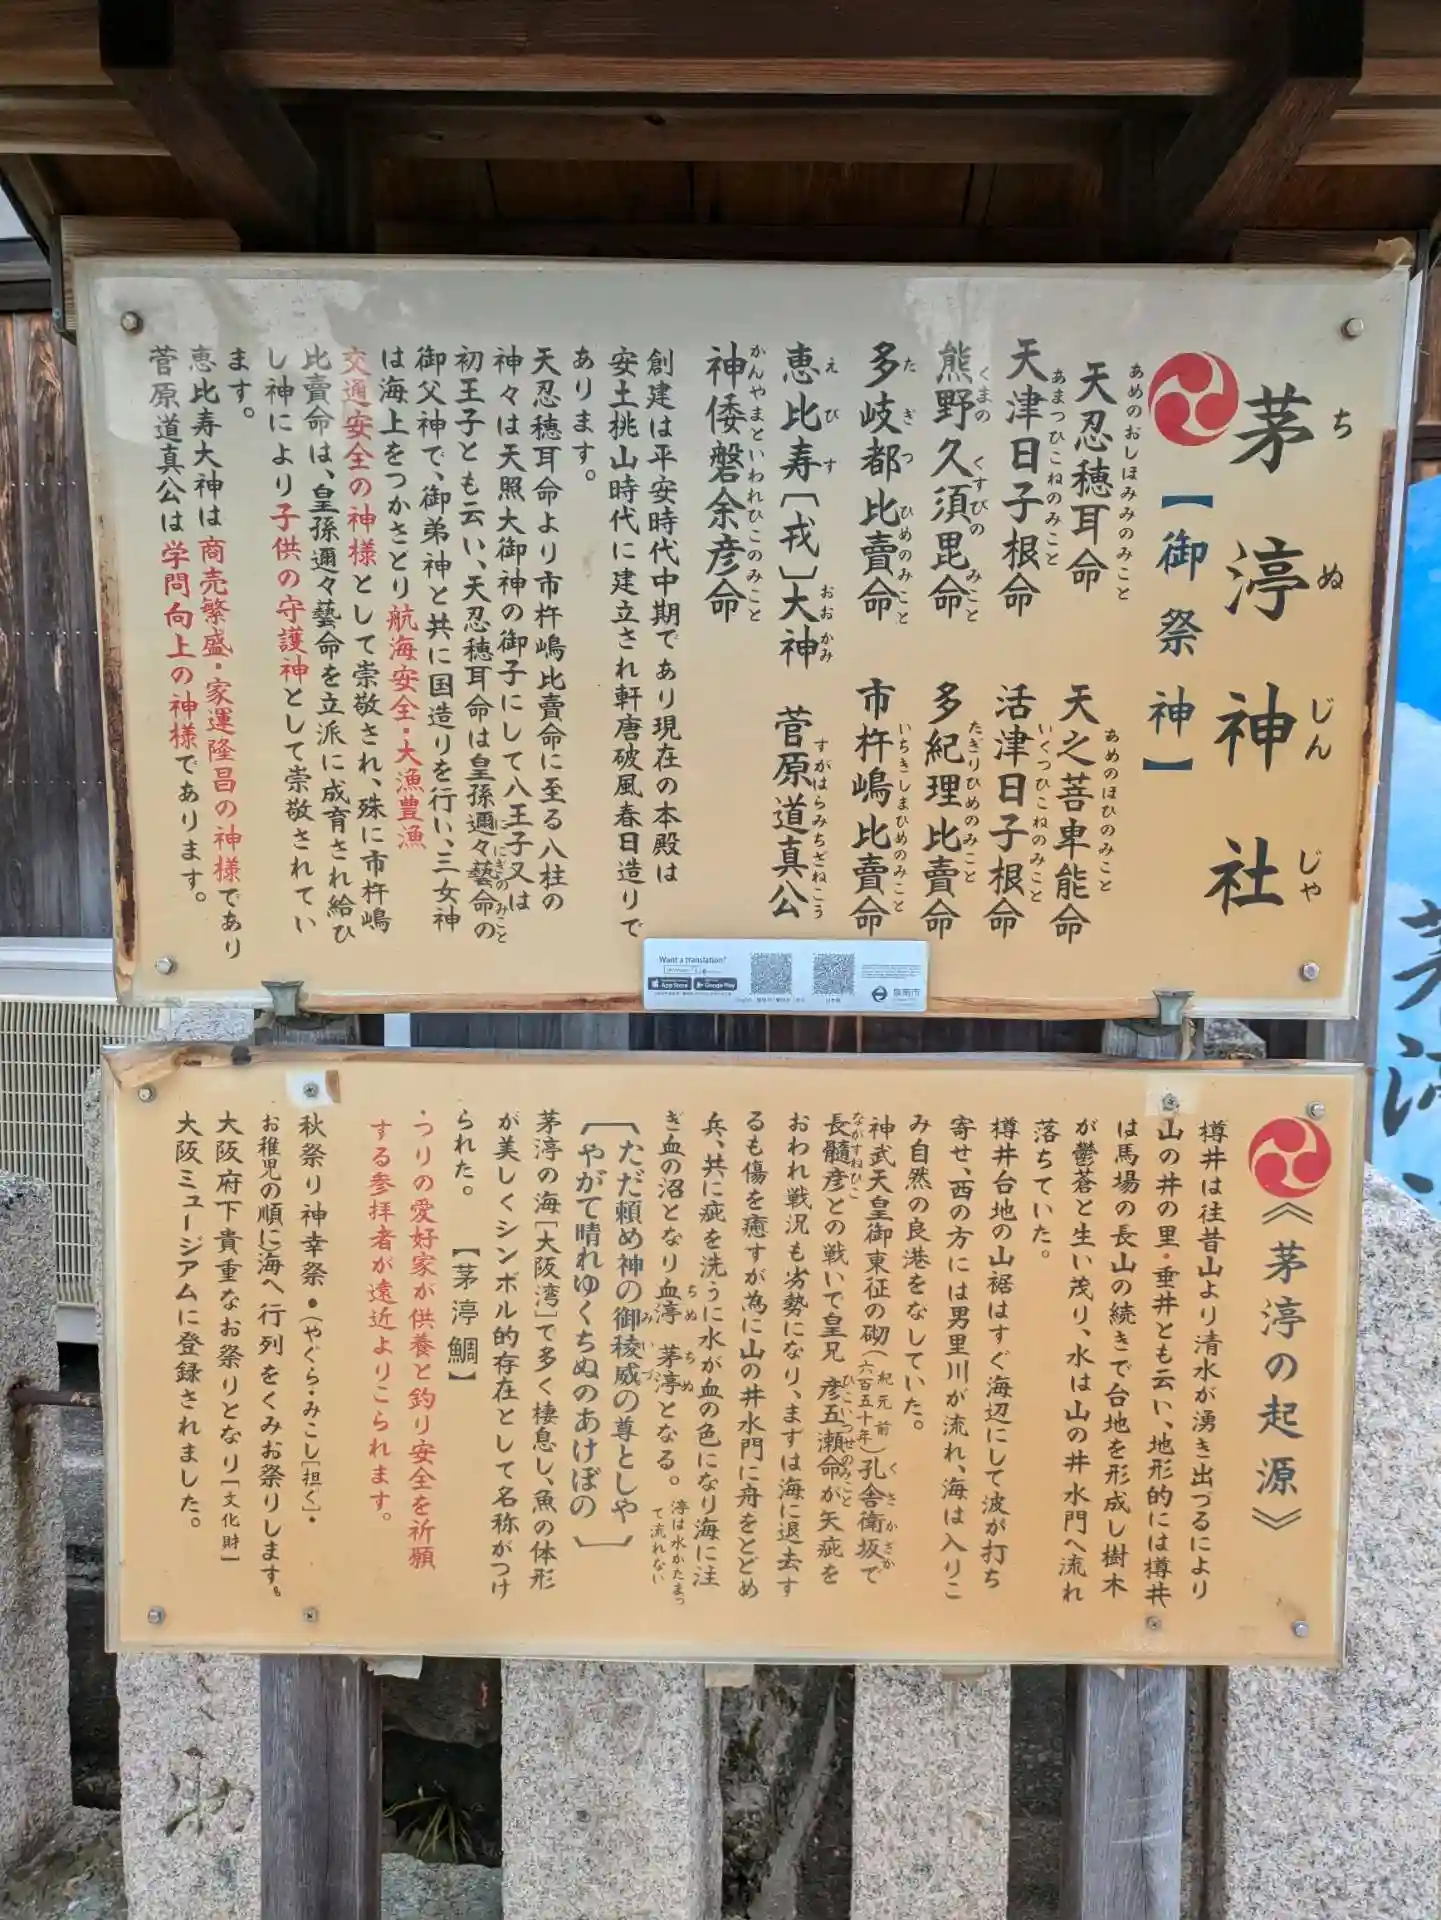 茅渟神社
ちぬじんじゃ
【御祭神】
天忍穂耳命
あめのおしほみみのみこと
天之菩卑能命
あめのほひのみこと
天津日子根命
あまつひこねのみこと
活津日子根命
いくつひこねのみこと
熊野久須毘命
くまのくすびのみこと
多紀理比賣命
たぎりひめのみこと
多岐都比賣命
たぎつひめのみこと
市杵嶋比賣命
いちきしまひめのみこと
恵比寿〔戎〕大神
えびすおおかみ
菅原道真公
すがはらみちざねこう
神倭磐余彦命
かんやまといわれひこのみこと
創建は平安時代中期であり現在の本殿は
安土桃山時代に建立され軒唐破風春日造りで
あります。
天忍穂耳命より市杵嶋比賣命に至る八柱の
神々は天照大御神の御子にして八王子又は
初王子とも云い、天忍穂耳命は皇孫邇々藝命の
ににぎのみこと
御父神で、御弟神と共に国造りを行い、三女神
は海上をつかさどり航海安全・大漁豊漁
交通安全の神様として崇敬され、殊に市杵嶋
比賣命は、皇孫邇々藝命を立派に成育され給ひ
し神により子供の守護神として崇敬されてい
ます。
恵比寿大神は商売繁盛・家運隆昌の神様であり
菅原道真公は学問向上の神様であります。
Want a translation?
App Store
Google Play
泉南市
《茅渟の起源》
樽井は往昔山より清水が湧き出づるにより
山の井の里・垂井とも云い、地形的には樽井
は馬場の長山の続きで台地を形成し樹木
が鬱蒼と生い茂り、水は山の井水門へ流れ
落ちていた。
樽井台地の山裾はすぐ海辺にして波が打ち
寄せ、西の方には男里川が流れ、海は入りこ
み自然の良港をなしていた。
神武天皇御東征の砌(紀元前六百五十年)孔舎衛坂で
くさかざか
長髄彦との戦いで皇兄 彦五瀬命が矢疵を
ながすねひこ ひこいつせのみこと
おわれ戦況も劣勢になり、まずは海に退去す
るも傷を癒すが為に山の井水門に舟をとどめ
兵、共に疵を洗うに水が血の色になり海に注
ぎ血の沼となり血渟 茅渟となる。渟は水がたまって流れない
ちぬ ちぬ
〔ただ頼め神の御稜威の尊としや
みいづ
やがて晴れゆくちぬのあけぼの〕
茅渟の海[大阪湾]で多く棲息し、魚の体形
が美しくシンボル的存在として名称がつけ
られた。【茅渟鯛】
・つりの愛好家が供養と釣り安全を祈願
する参拝者が遠近よりこられます。
秋祭り神幸祭●(やぐら・みこし[担ぐ]・
お稚児の順に海へ行列をくみお祭りします。
大阪府下貴重なお祭りとなり[文化財]
大阪ミュージアムに登録されました。
茅渟